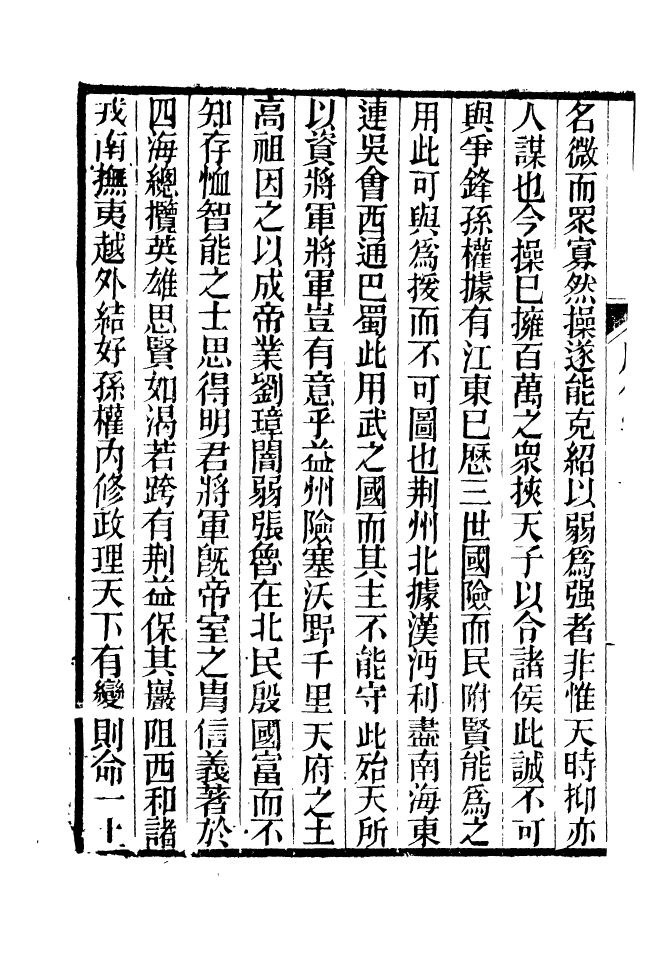 名微而眾寡然操遂能克紹以弱爲强者非惟天時抑亦
人謀也今操已擁百萬之衆挾天子以合諸侯此誠不可
與爭鋒孫權據有江東已歷三世國險而民附賢能爲之
用此可與爲援而不可圖也荆州北據漢沔利盡南海東
連吳會西通巴蜀此用武之國而其主不能守此殆天所
以資將軍將軍豈有意乎益州險塞沃野千里天府之土
高祖因之以成帝業劉璋闇弱張魯在北民殷國富而不
知存恤智能之士思得明君將軍旣帝室之胄信義著於
四海總攬英雄思賢如渴若跨有荆益保其巖阻西和諸
戎南撫夷越外結好孫權內修政理天下有變則命一上